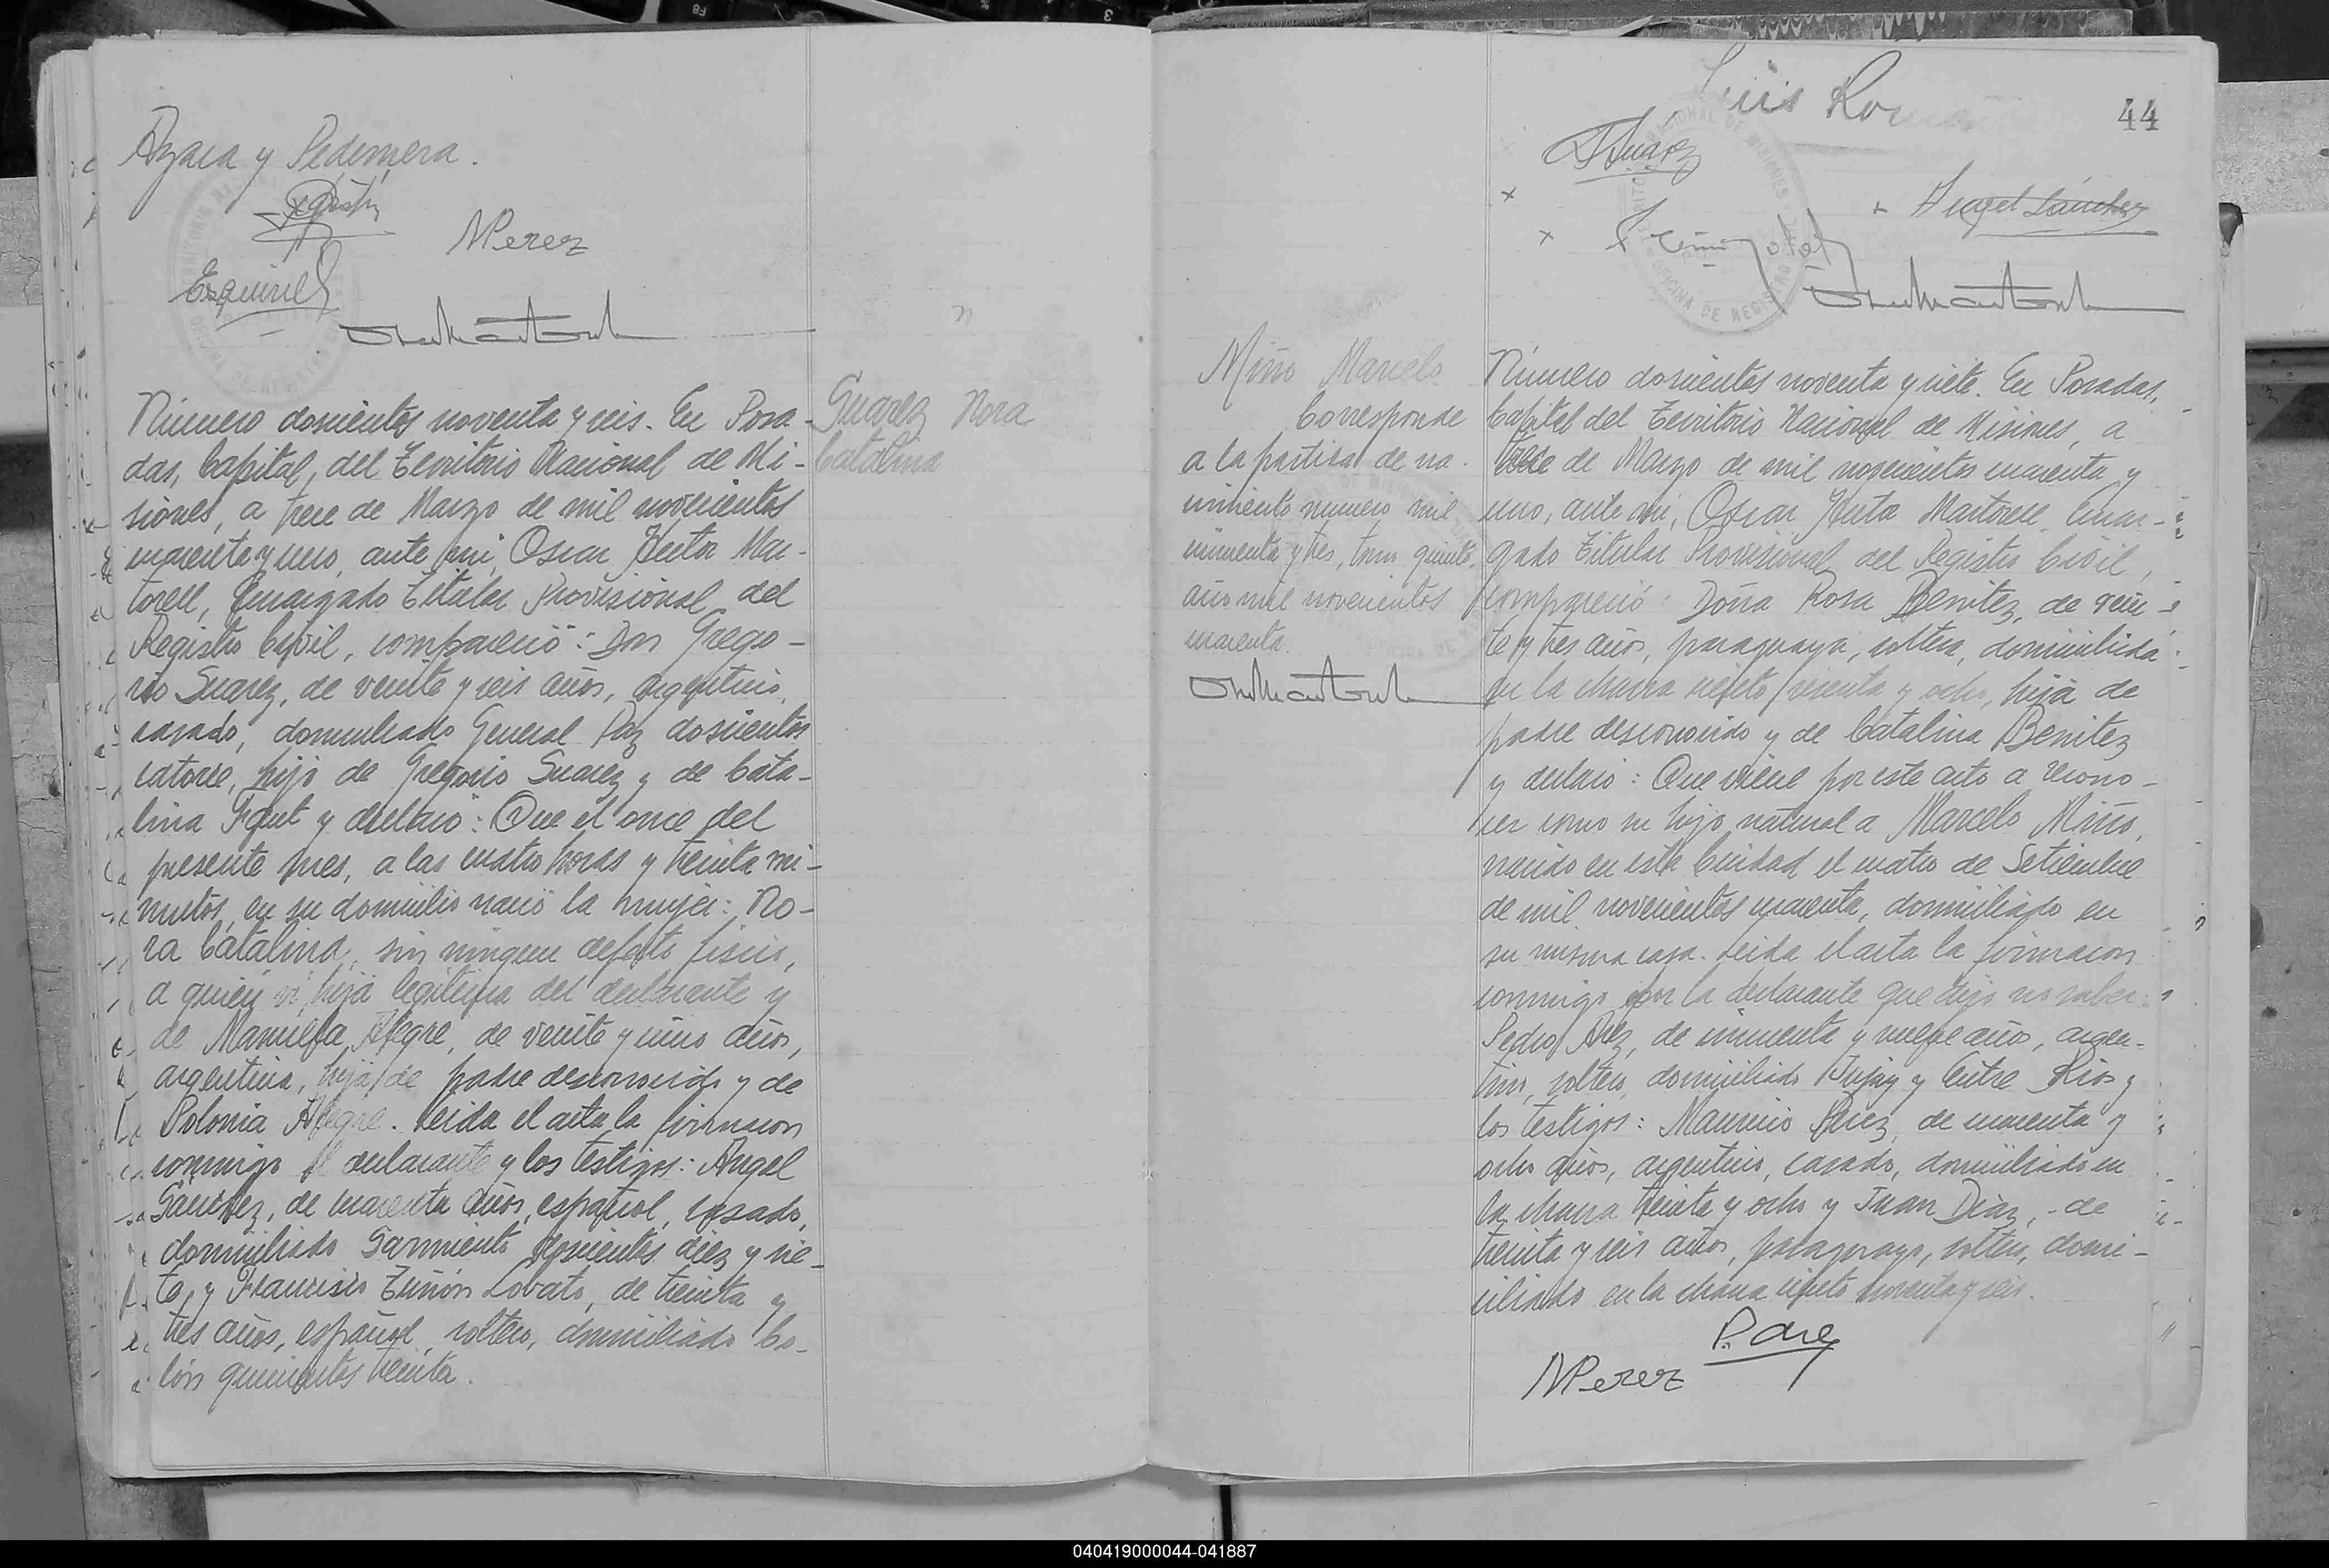 Azara y Pedernera.
MPerez
Esquivel
Número doscientos noventa y seis. En Posa-
das, Capital, del Territorio Nacional de Mi-
siones, a trece de Marzo de mil novecientos
cuarenta y uno, ante mi, Oscar Hector Mar-
torell, Encargado Titular Provisional del
Registro Civil, compareció: Don Grego-
rio Suarez, de veinte y seis años, argentino,
casado, domiciliado General Paz doscientos
catorce, hijo de Gregorio Suarez y de Cata-
lina y declaró: Que el once del
presente mes, a las cuatro horas y treinta mi-
nutos, en su domicilio nació la mujer: No-
ra Catalina, sin ningun defecto fisico,
a quién vi, hija legitima del declarante y
de Manuela Alegre, de veinte y uno años,
argentina, hija de padre desconocido y de
Polonia Alegre. Leida el acta la firmaron
conmigo el declarante y los testigos: Angel
Sánchez, de cuarenta años, español, casado,
domiciliado Sarmiento doscientos diez y sie-
te, y Francisco Tuñón Lobato, de treinta y
tres años, español, soltero, domiciliado Co-
lón quinientos treinta.
Suarez Nora
Catalina
Luis Roman
44
GSuárez
Angel Sánchez
Miño Marcelo
Corresponde
a la partida de na-
cimiento numero mil
cincuenta y tres, tomo quinto,
año mil novecientos
cuarenta.
Número doscientos noventa y siete. En Posadas,
Capital del Territorio Nacional de Misiones, a
trece de Marzo de mil novecientos cuarenta y
uno, ante mi, Oscar Hector Martorell, Encar-
gado Titular Provisional del Registro Civil,
compareció: Doña Rosa Benitez, de vein-
te y tres años, paraguaya, soltera, domiciliada
en la chacra ciento sesenta y ocho, hija de
padre desconocido y de Catalina Benitez
y declaró: Que viene por este acto a recono-
cer como su hijo natural a Marcelo Miño,
nacido en esta Ciudad el cuatro de Setiembre
de mil novecientos cuarenta, domiciliado en
su misma casa. Leida el acta la firmaron
conmigo por la declarante que dijo no saber:
Pedro Arez, de cincuenta y nueve años, argen-
tino, soltero, domiciliado Jujuy y Entre Rios y
los testigos: Mauricio Perez, de cuarenta y
ocho años, argentino, casado, domiciliado en
la chacra treinta y ocho y Juan Diaz, de
treinta y seis años, paraguayo, soltero, domi-
ciliado en la chacra ciento noventa y seis.
P. Arez
MPerez
040419000044-041887